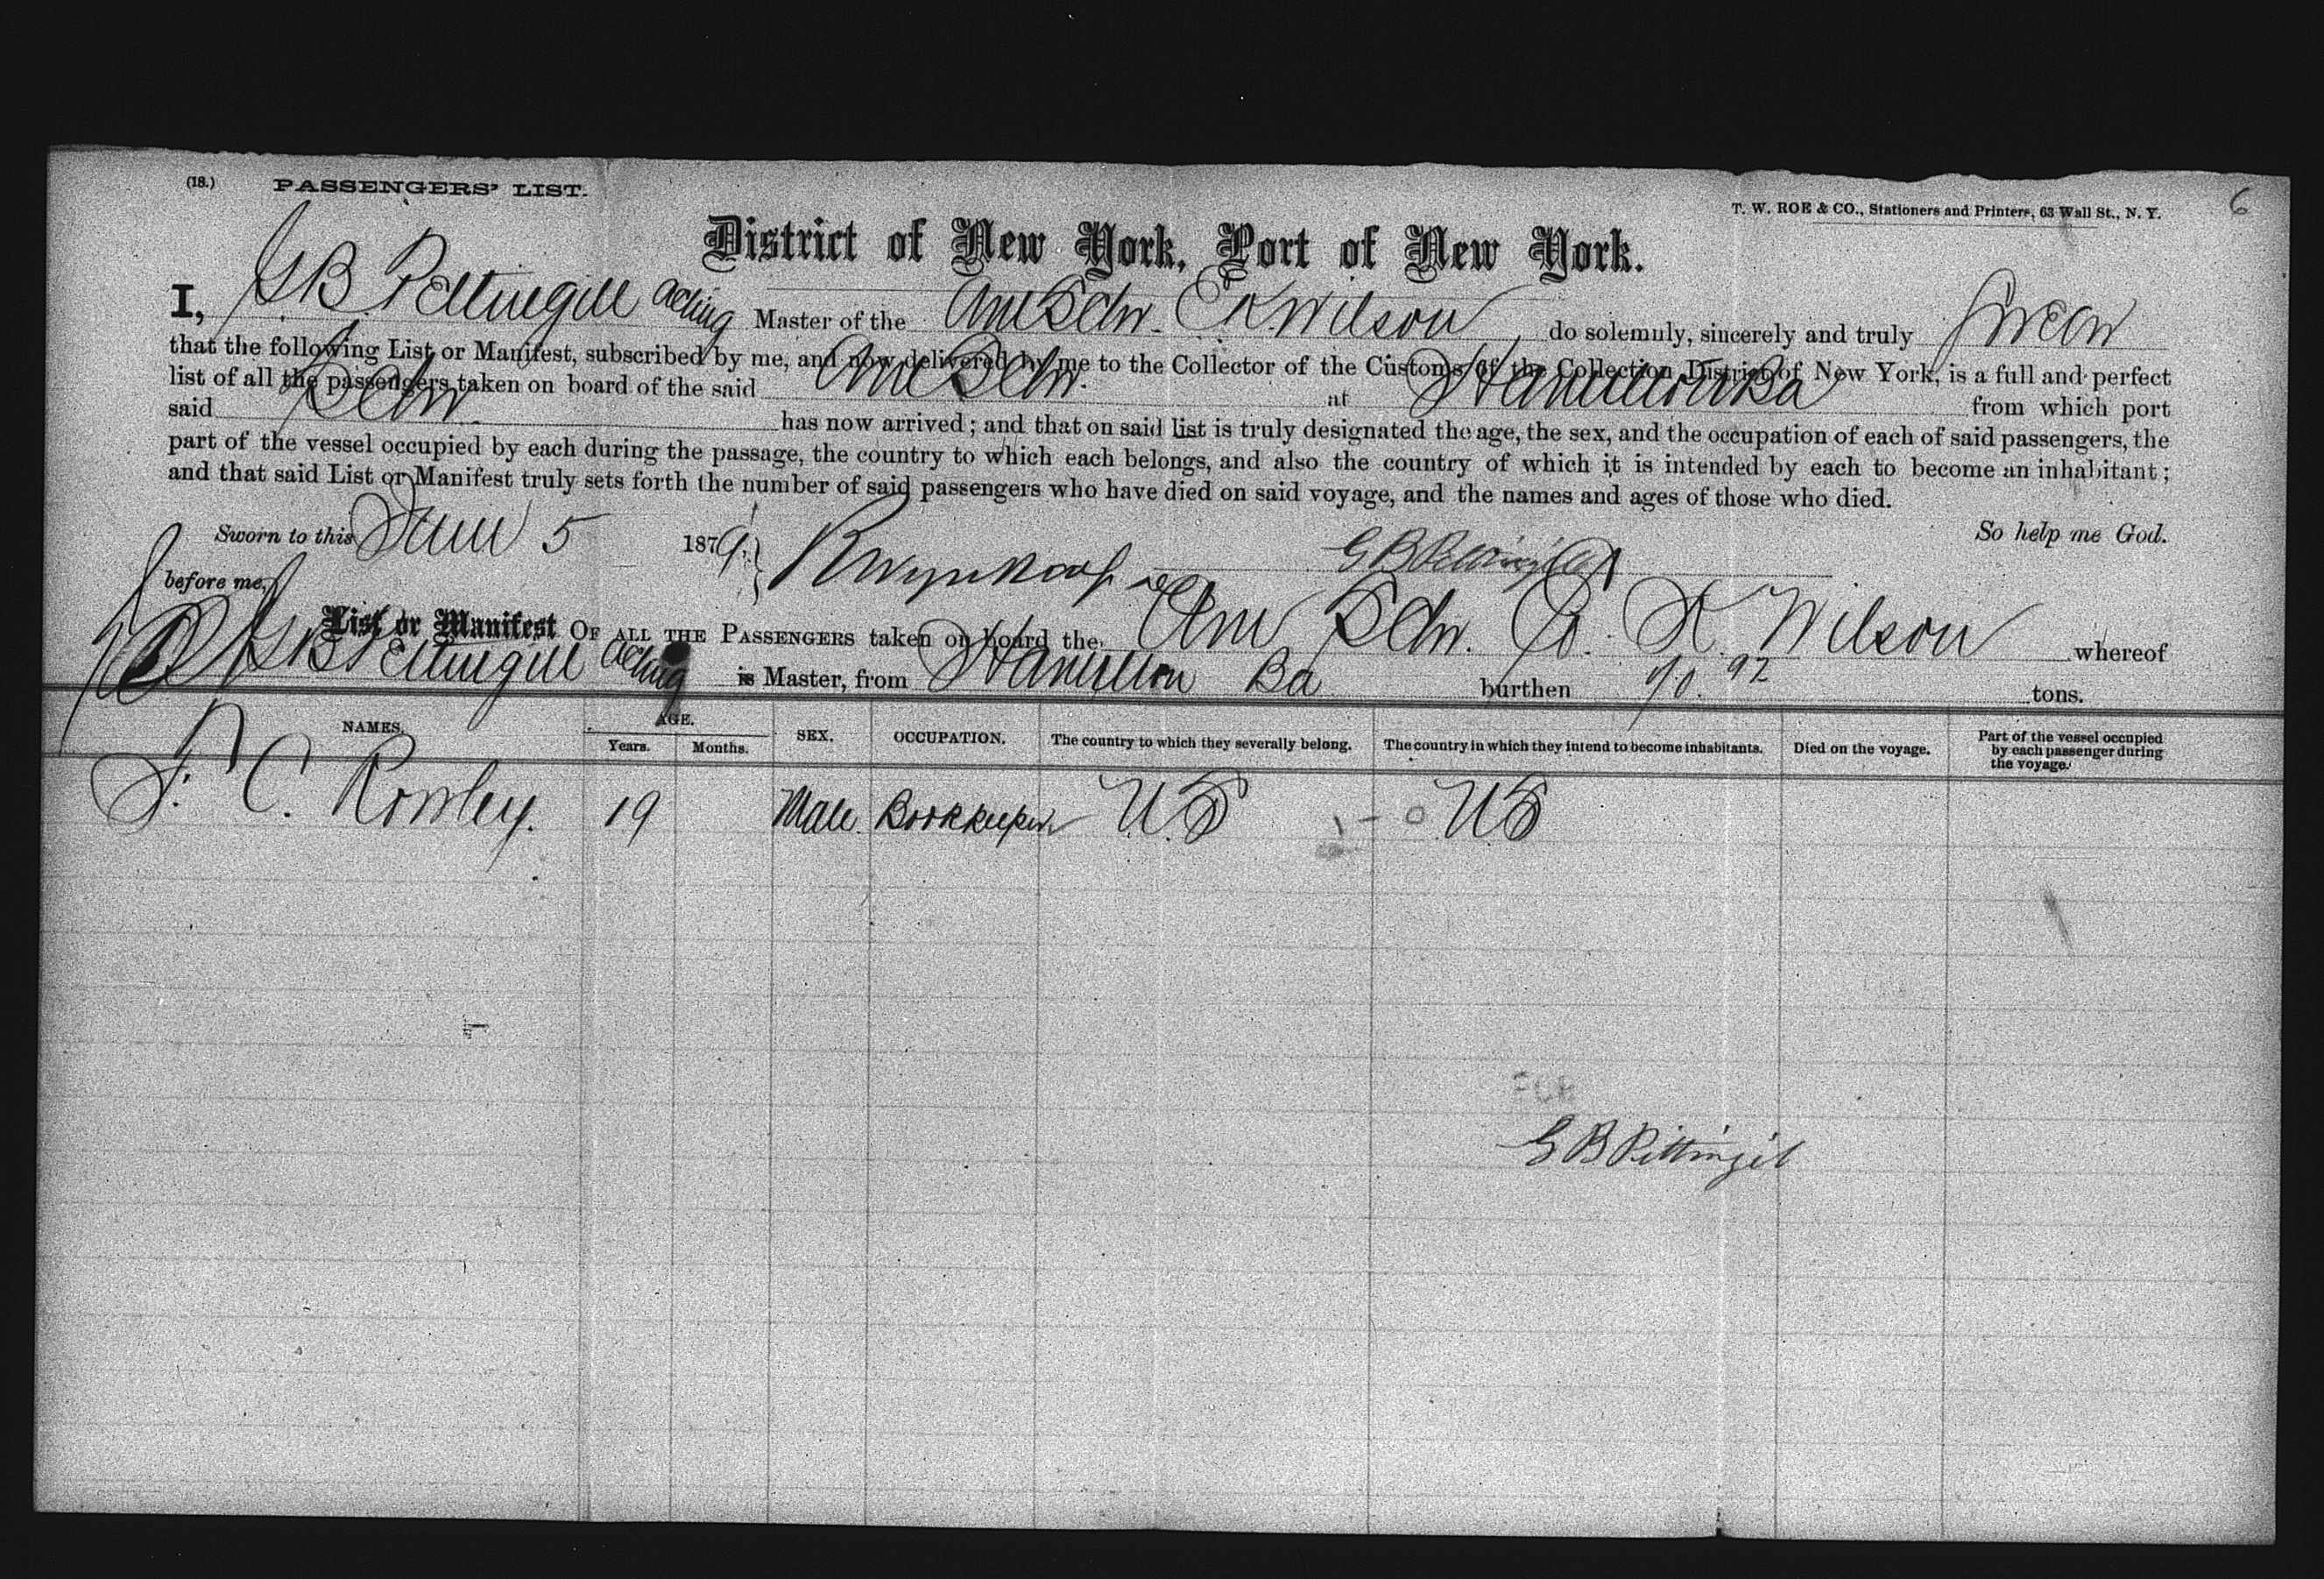 (18.) PASSENGERS' LIST.
T. W. ROE & CO., Stationers and Printers, 63 Wall St., N. Y. 6
District of New York, Port of New York.
I, G B Pettingill acting Master of the Am Schr. Wilson do solemnly, sincerely and truly swear
that the following List or Manifest, subscribed by me, and now delivered by me to the Collector of the Customs of the Collection District of New York, is a full and perfect
list of all the passengers taken on board of the said Am Schr. at Hamilton Ba from which port
said Schr has now arrived; and that on said list is truly designated the age, the sex, and the occupation of each of said passengers, the
part of the vessel occupied by each during the passage, the country to which each belongs, and also the country of which it is intended by each to become an inhabitant;
and that said List or Manifest truly sets forth the number of said passengers who have died on said voyage, and the names and ages of those who died.
So help me God.
Sworn to this 5 1879,
before me, G B Pettingill
List or Manifest OF ALL THE PASSENGERS taken on board the Am Schr. K. Wilson whereof
G B Pettingill acting is Master, from Hamilton Ba burthen 92 tons.
NAMES. AGE. SEX. OCCUPATION. The country to which they severally belong. The country in which they intend to become inhabitants. Died on the voyage. Part of the vessel occupied by each passenger during the voyage.
Years. Months.
C. Rowley. 19 Male. Bookkeeper U.S US
G B Pittingil